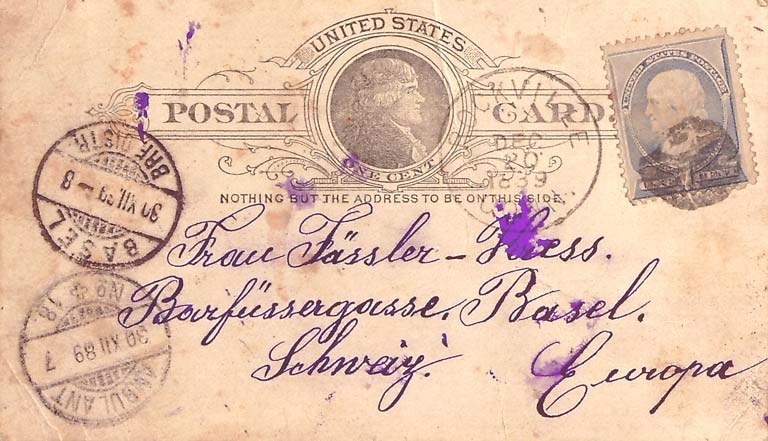 UNITED STATES
POSTAL CARD.
ONE CENT
NOTHING BUT THE ADDRESS TO BE ON THIS SIDE.
UNITED STATES POSTAGE
CKVILLE
DEC
20
1889
CONN.
BASEL
BRF. DISTR.
30 XII 89 – 8
Frau Fässler –
Barfüssergasse. Basel.
Schweiz. Europa
AMBULANT
No 18
30 XII 89 7